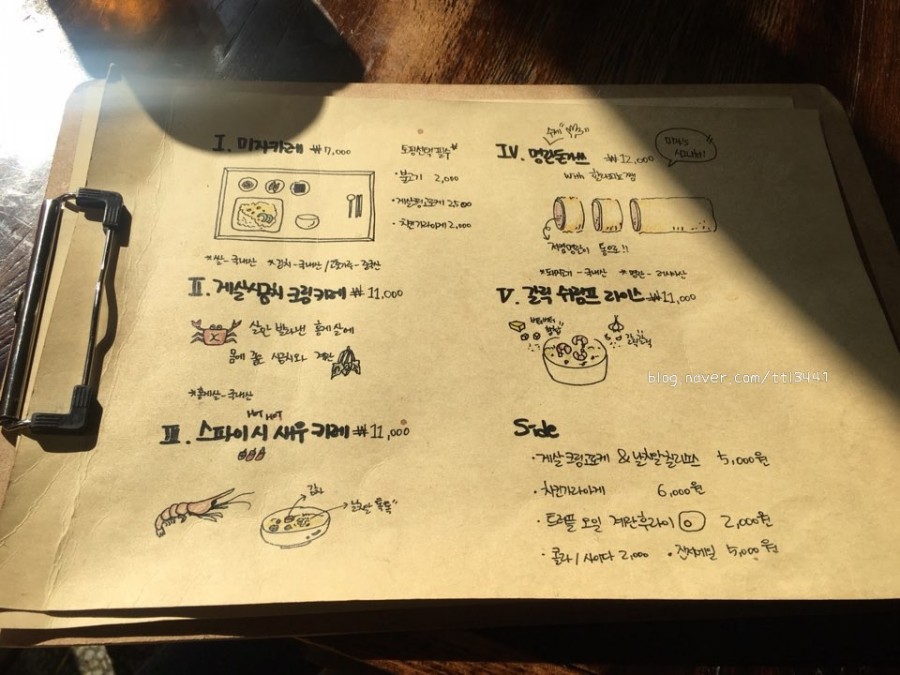 I. 미자카레 ₩7,000
토핑선택 필수
·불고기 2,000
·게살크림고로케 2,500
·치킨가라아게 2,000
*쌀-국내산 *김치-국내산/고춧가루-중국산
II. 게살시금치 크림카레 ₩11,000
살만 발라낸 홍게살에
몸에 좋은 시금치와 계란
*홍게살-국내산
HOT HOT
III. 스파이시 새우카레 ₩11,000
감자
날치알 톡톡
수제
IV. 명란돈까스 ₩12,000
미자's 시그니처!
with 할라피뇨 쨈
저염명란이 통으로!!
*돼지고기-국내산 *명란-러시아산
V. 갈릭 쉬림프 라이스 ₩11,000
버터버터
blog.naver.com/ttl3441
Side
·게살크림고로케 & 날치알칠리포스 5,000원
·치킨가라아게 6,000원
·트러플 오일 계란후라이 2,000원
·콜라/사이다 2,000 ·진저에일 5,000원